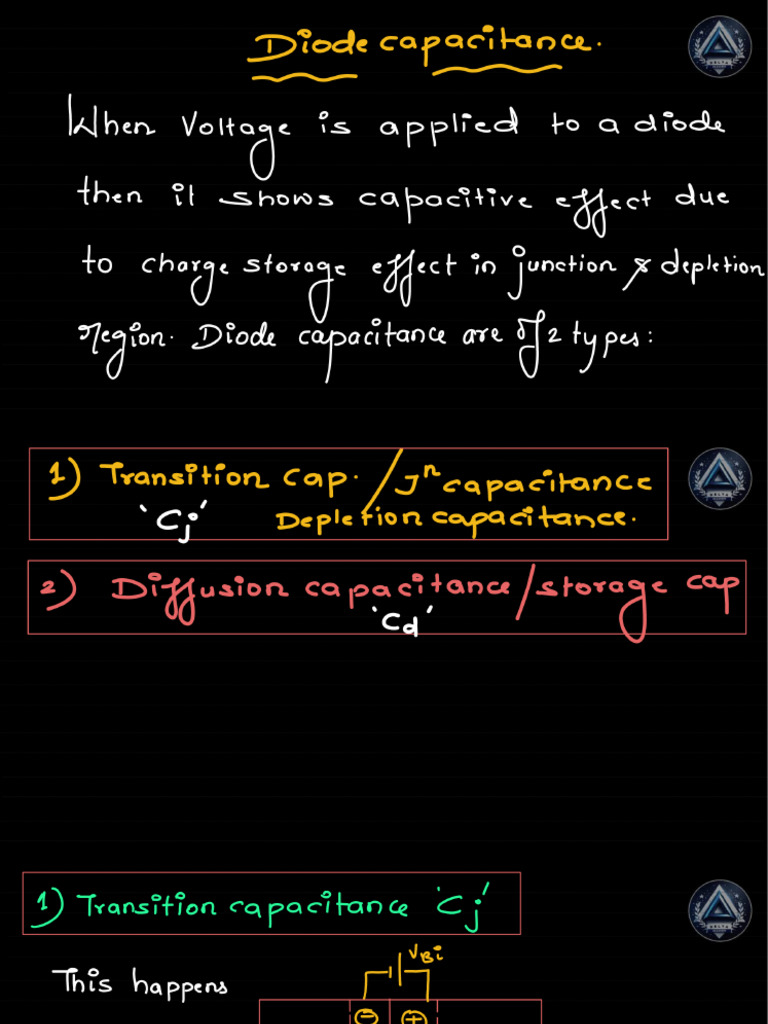 Diode capacitance.
When Voltage is applied to a diode
then it shows capacitive effect due
to charge storage effect in junction & depletion
region. Diode capacitance are of 2 types:
1) Transition cap. / Jⁿ capacitance
'Cj' Depletion capacitance.
2) Diffusion capacitance / storage cap
'Cd'
1) Transition capacitance 'Cj'
VBi
This happens
⊖ ⊕